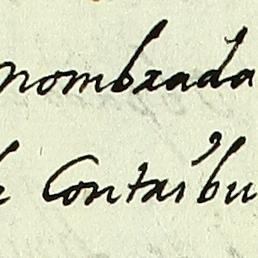 nombrada
Contribu